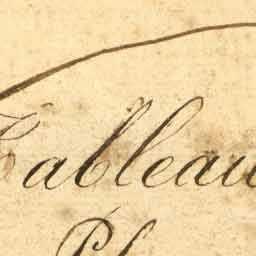 Tableau
Pl